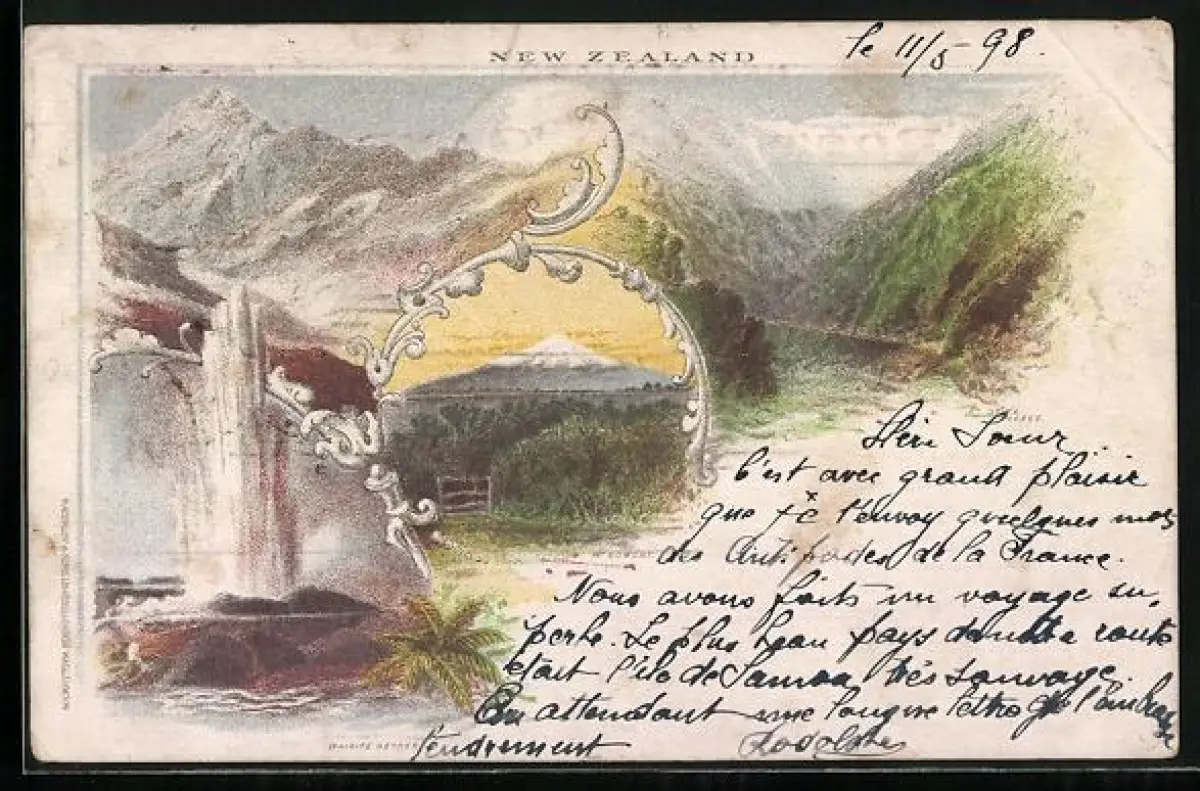 NEW ZEALAND
le 11/5 98.
Soeur
C'est avec grand plaisir
que je t'envoy quelques mots
des Antipodes de la France.
Nous avons faits un voyage su,
perbe. Le plus beau pays de notre route
etait l'ile de Samoa très sauvage
En attendant une longue lettre je t'embrasse
tendrement Rodolphe
MT EGMONT
WAIROA GEYSER